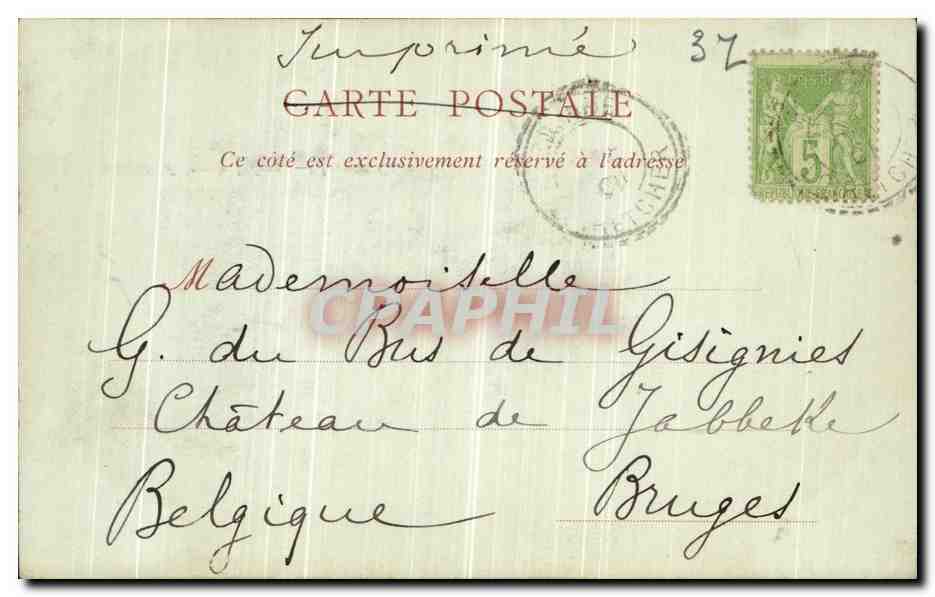 Imprimé
37
CARTE POSTALE
Ce côté est exclusivement réservé à l'adresse
5
Mademoiselle
CPAPHIL
G. du Bus de Gisignies
Château de Jabbeke
Belgique Bruges